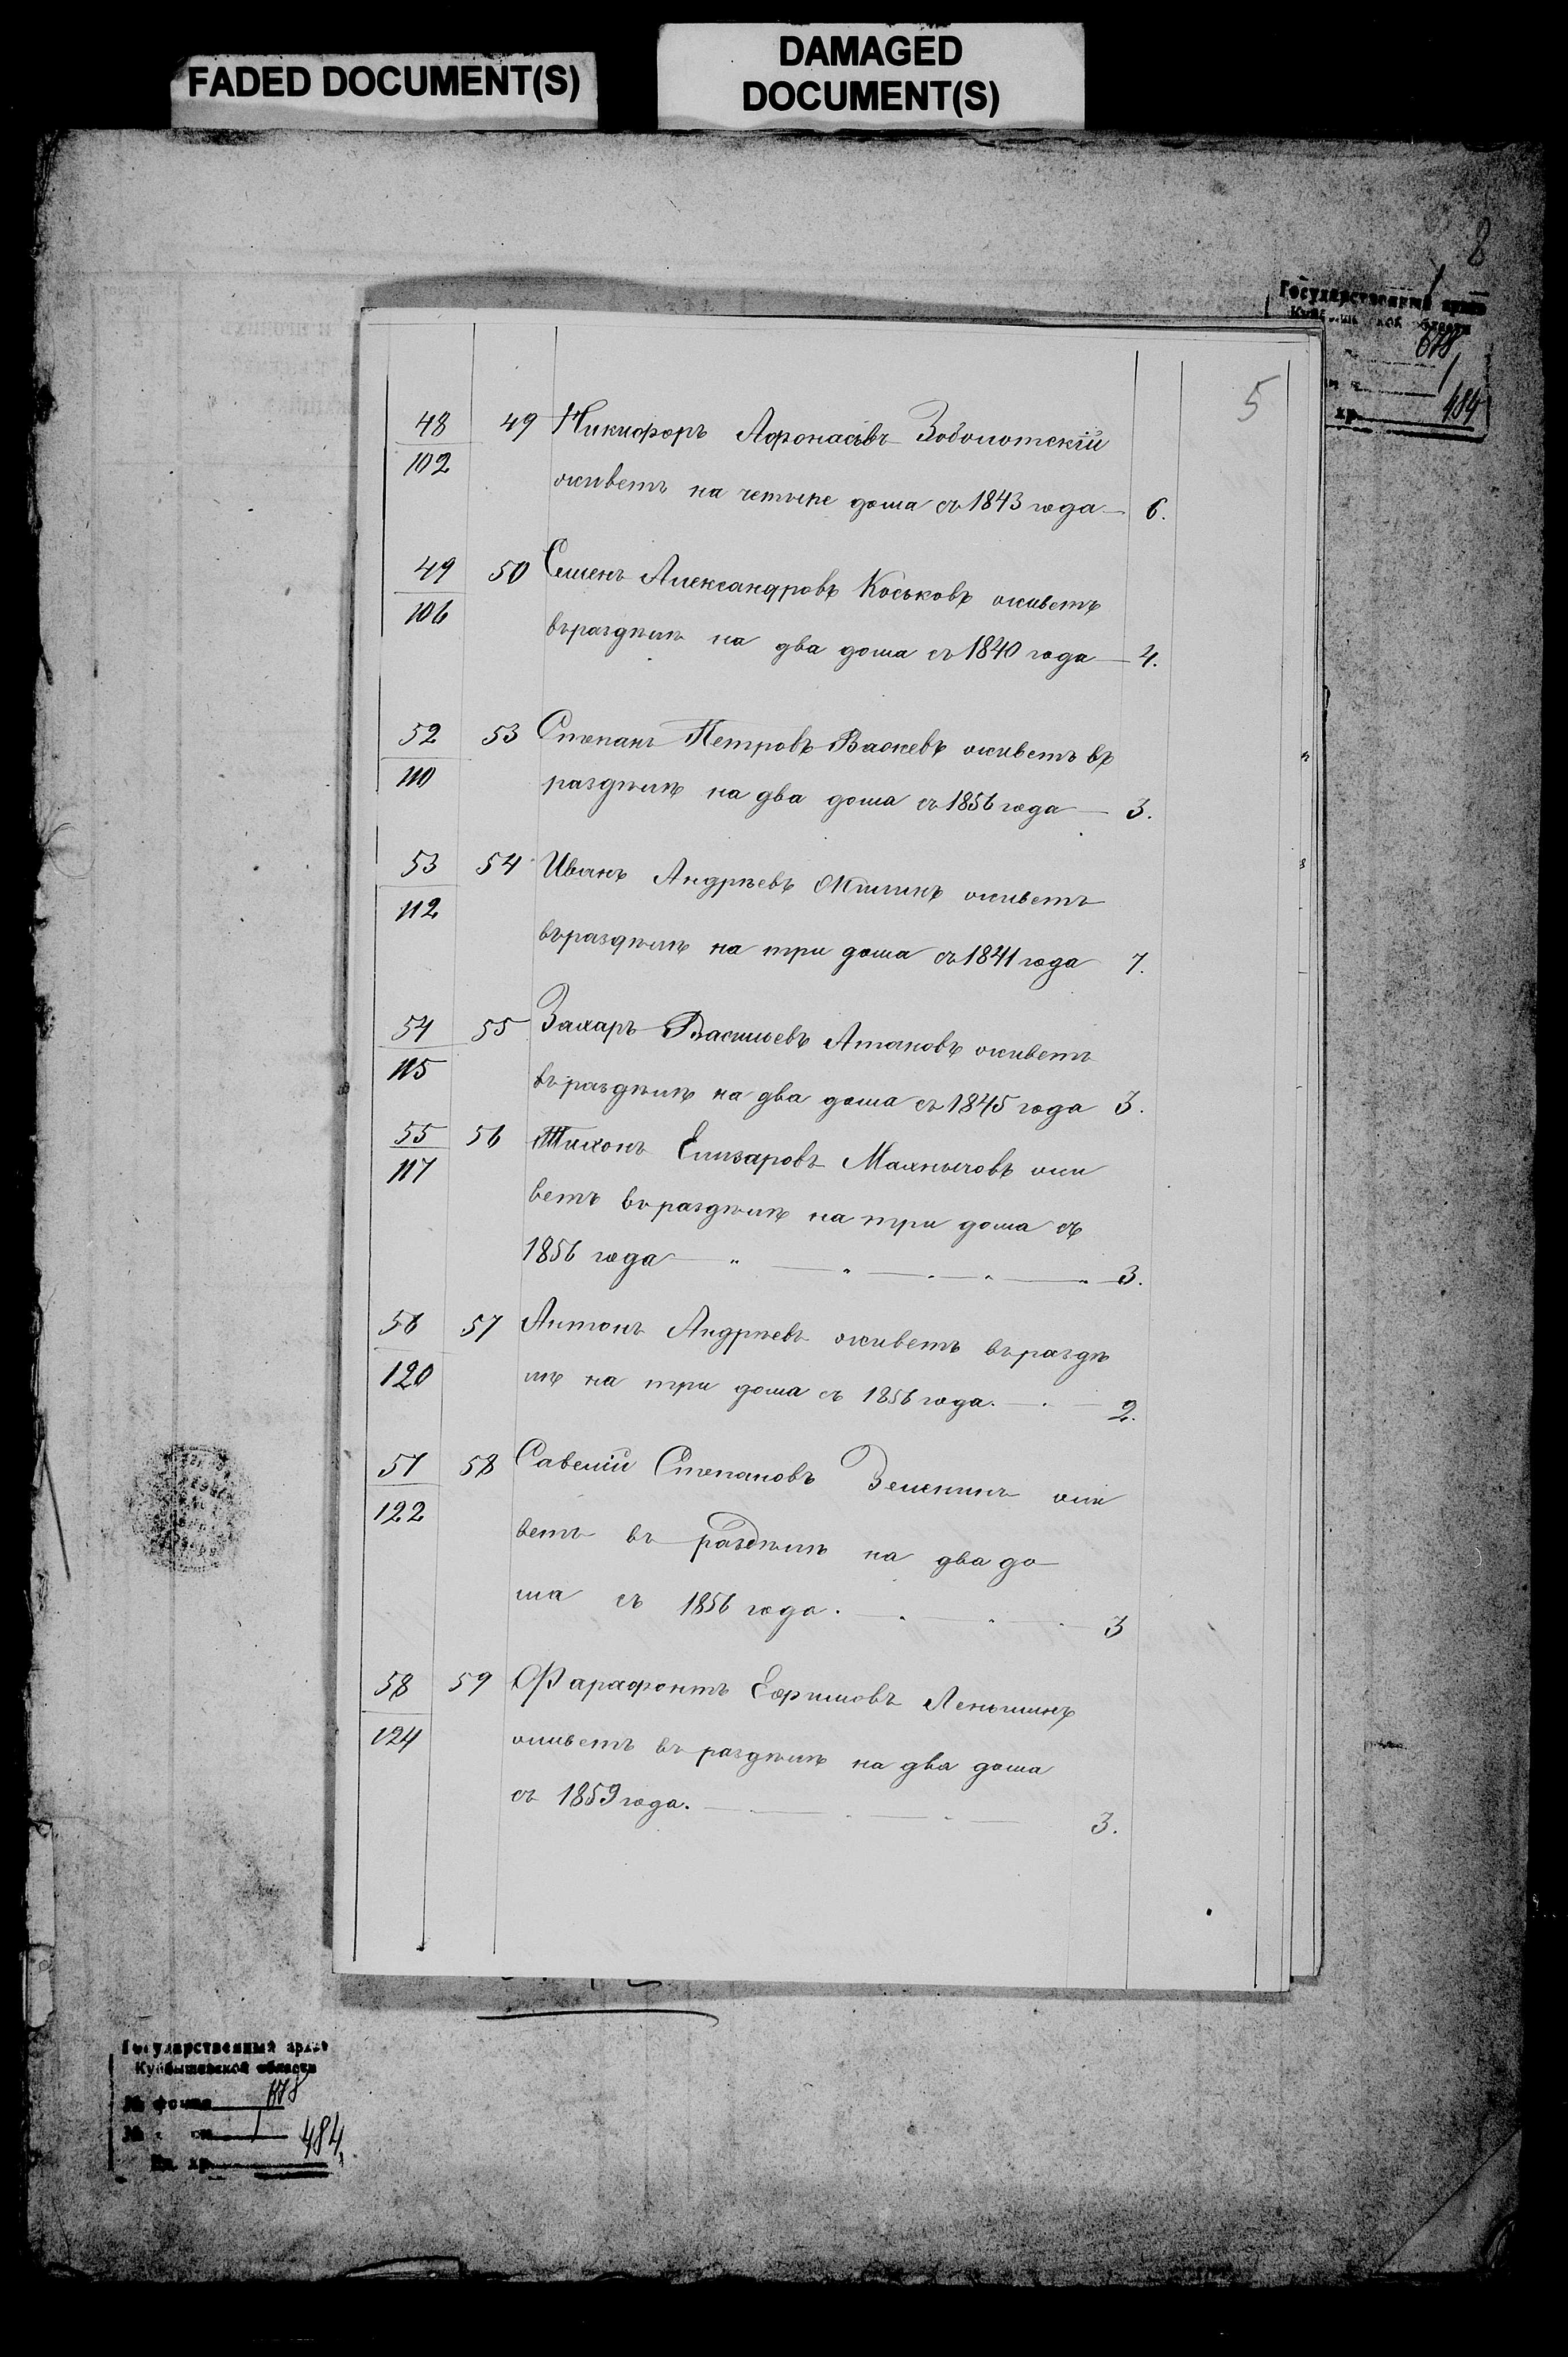 FADED DOCUMENT(S)
DAMAGED
DOCUMENT(S)
8
Государственный архив
678
1
хр. 484
5
48 49 Никифоръ Афонасьевъ Заболотскій
102
живетъ на четыре дома съ 1843 года — 6.
49 50 Семенъ Александровъ Коськовъ живетъ
106
въ раздѣлѣ на два дома съ 1840 года — 4.
52 53 Степанъ Петровъ живетъ въ
110
раздѣлѣ на два дома съ 1856 года — 3.
53 54 Иванъ Андрѣевъ живетъ
112
въ раздѣлѣ на три дома съ 1841 года 7.
54 55 Захаръ Васильевъ Атановъ живетъ
115
въ раздѣлѣ на два дома съ 1845 года 3.
55 56 Тихонъ Елизаровъ жи
117
ветъ въ раздѣлѣ на три дома съ
1856 года — 3.
56 57 Антонъ Андрѣевъ живетъ въ раздѣ
120
лѣ на три дома съ 1856 года. — 2.
57 58 Савелій Степановъ Зеленинъ жи
122
ветъ въ раздѣлѣ на два до
ма съ 1856 года. — 3
58 59 Фарафонтъ Ефимовъ Леньшинъ
124
живетъ въ раздѣлѣ на два дома
съ 1859 года. — 3.
Государственный архив
Куйбышевской области
№ фонда 678
№ 1
Ед. хр. 484